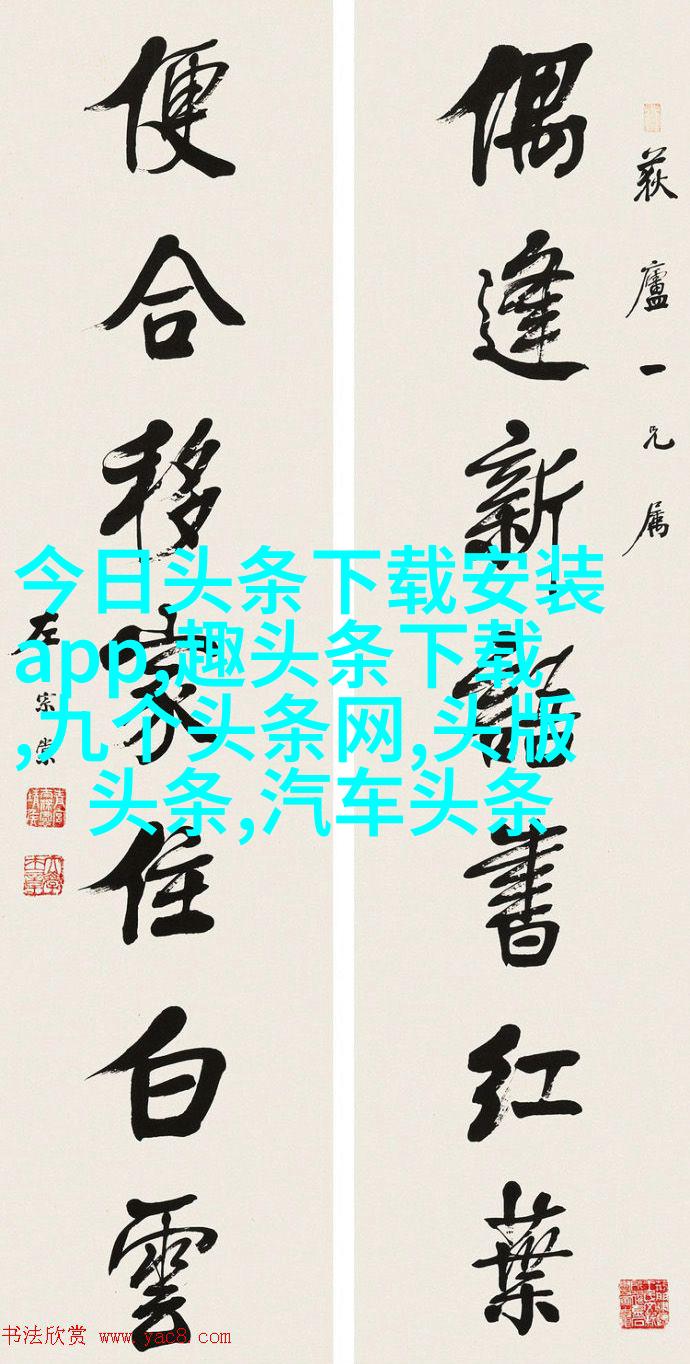 偶逢新語書紅葉
荻廬一兄属
便合移家住白雲
左宗棠
今日头条下载安装
app,趣头条下载
,九个头条网,头版
头条,汽车头条
书法欣赏 www.yac8.com